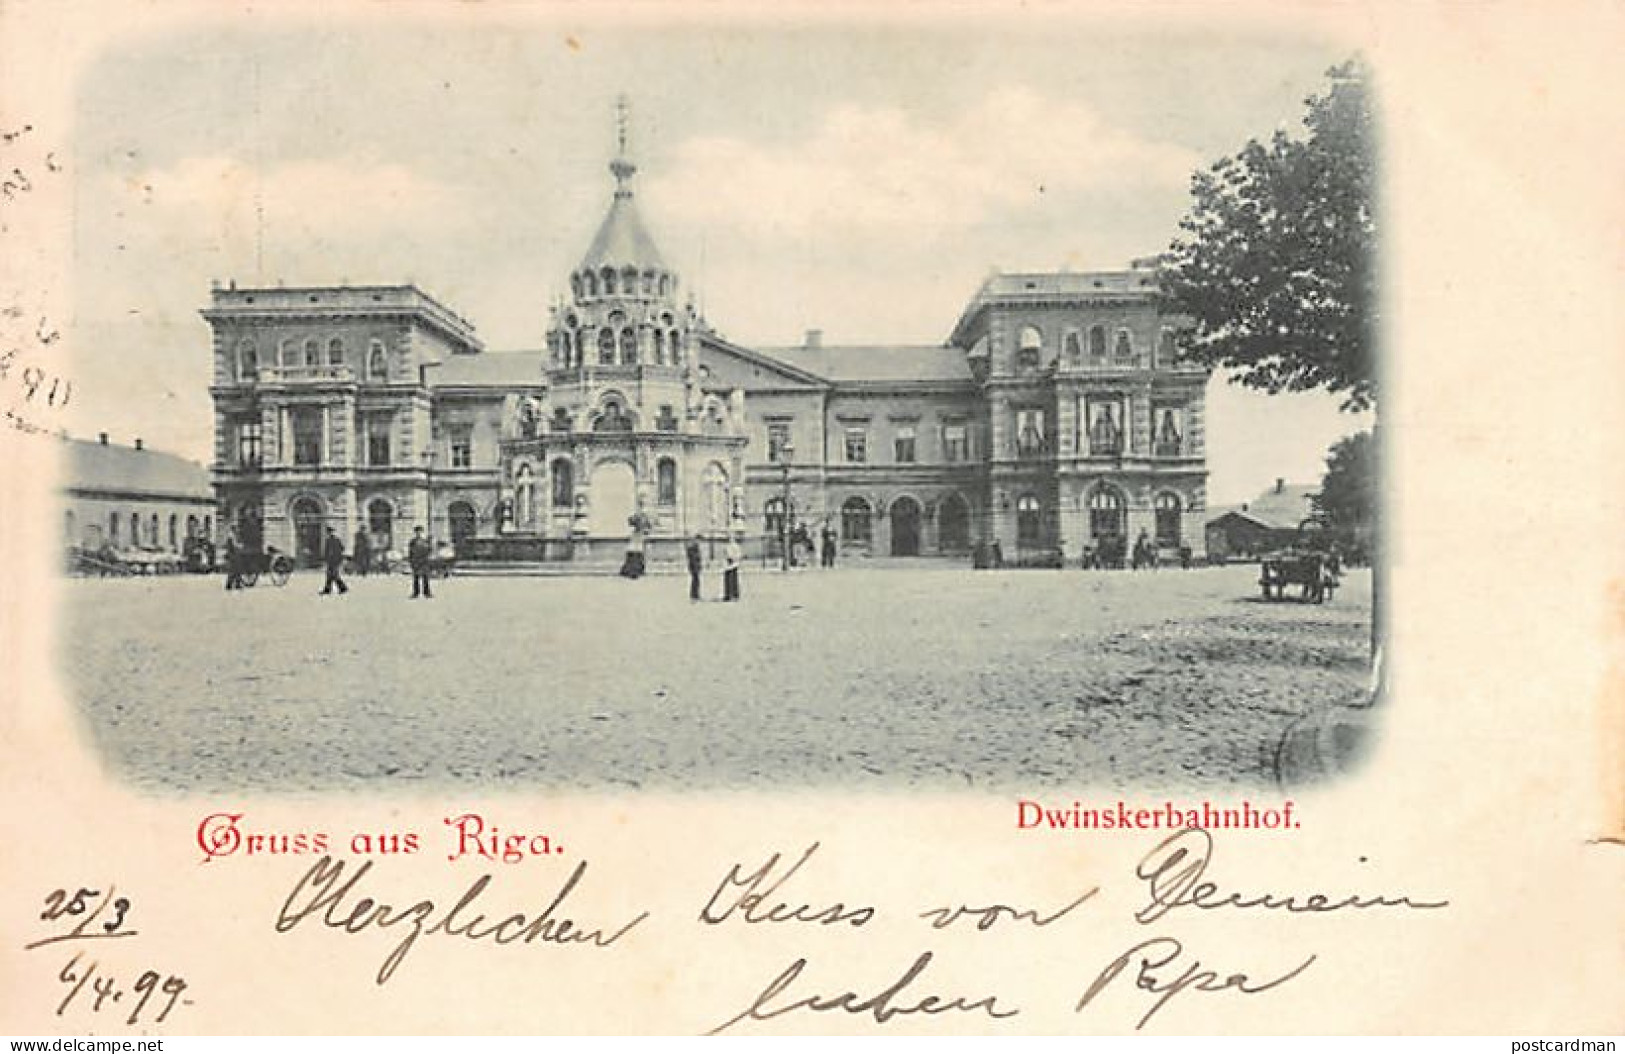 Gruss aus Riga.
Dwinskerbahnhof.
25/3
6/4.99.
Herzlichen Kuss von Deinem
lieben Papa
www.delcampe.net
postcardman